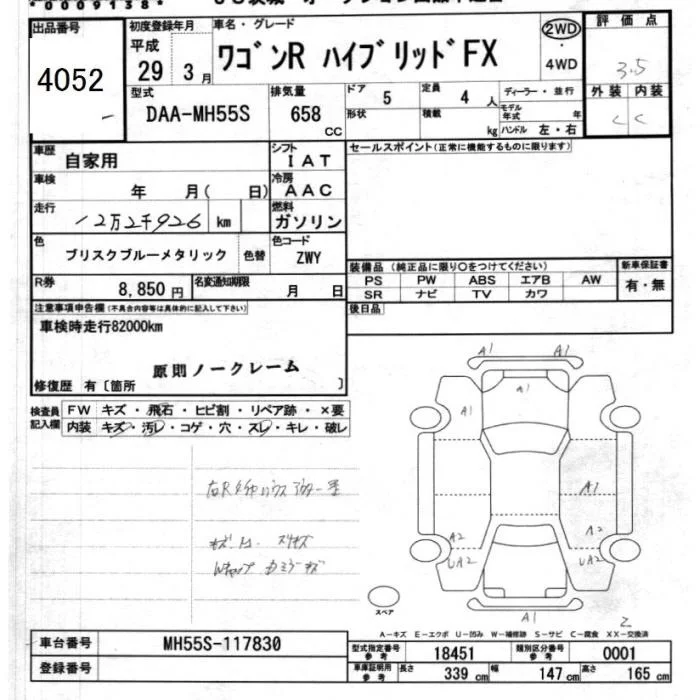 *0009138*
出品番号
4052
初度登録年月
平成
29 3月
車名・グレード
ワゴンR ハイブリッドFX
2WD
・
4WD
評価点
3.5
外装 内装
C C
型式
DAA-MH55S
排気量
658
CC
ドア 5
形状
定員 4 人
積載 kg
ディーラー・並行
モデル年式 年
ハンドル 左・右
車歴 自家用
シフト
IAT
車検 年 月( 日)
冷房
AAC
走行 12万2千926 km
燃料
ガソリン
色
ブリスクブルーメタリック
色替
色コード
ZWY
R券 8,850円
名変通知期限 月 日
セールスポイント(正常に機能するものに限ります)
装備品(純正品に限り○をつけてください)
PS PW ABS エアB AW
SR ナビ TV カワ
新車保証書
有・無
後日品
注意事項申告欄(不具合内容等は具体的に記入して下さい)
車検時走行82000km
原則ノークレーム
修復歴 有〔箇所 〕
検査員記入欄
FW キズ・飛石・ヒビ割・リペア跡・×要
内装 キズ・汚レ・コゲ・穴・スレ・キレ・破レ
A1 A1
A1
A1
A1
A2 A2
UA2 UA2
A1
スペア
2
A-キズ E-エクボ U-凹み W-補修跡 S-サビ C-腐食 XX-交換済
車台番号 MH55S-117830
登録番号
型式指定番号 参考 18451
類別区分番号 参考 0001
車庫証明用 参考 長さ 339 cm 幅 147 cm 高さ 165 cm